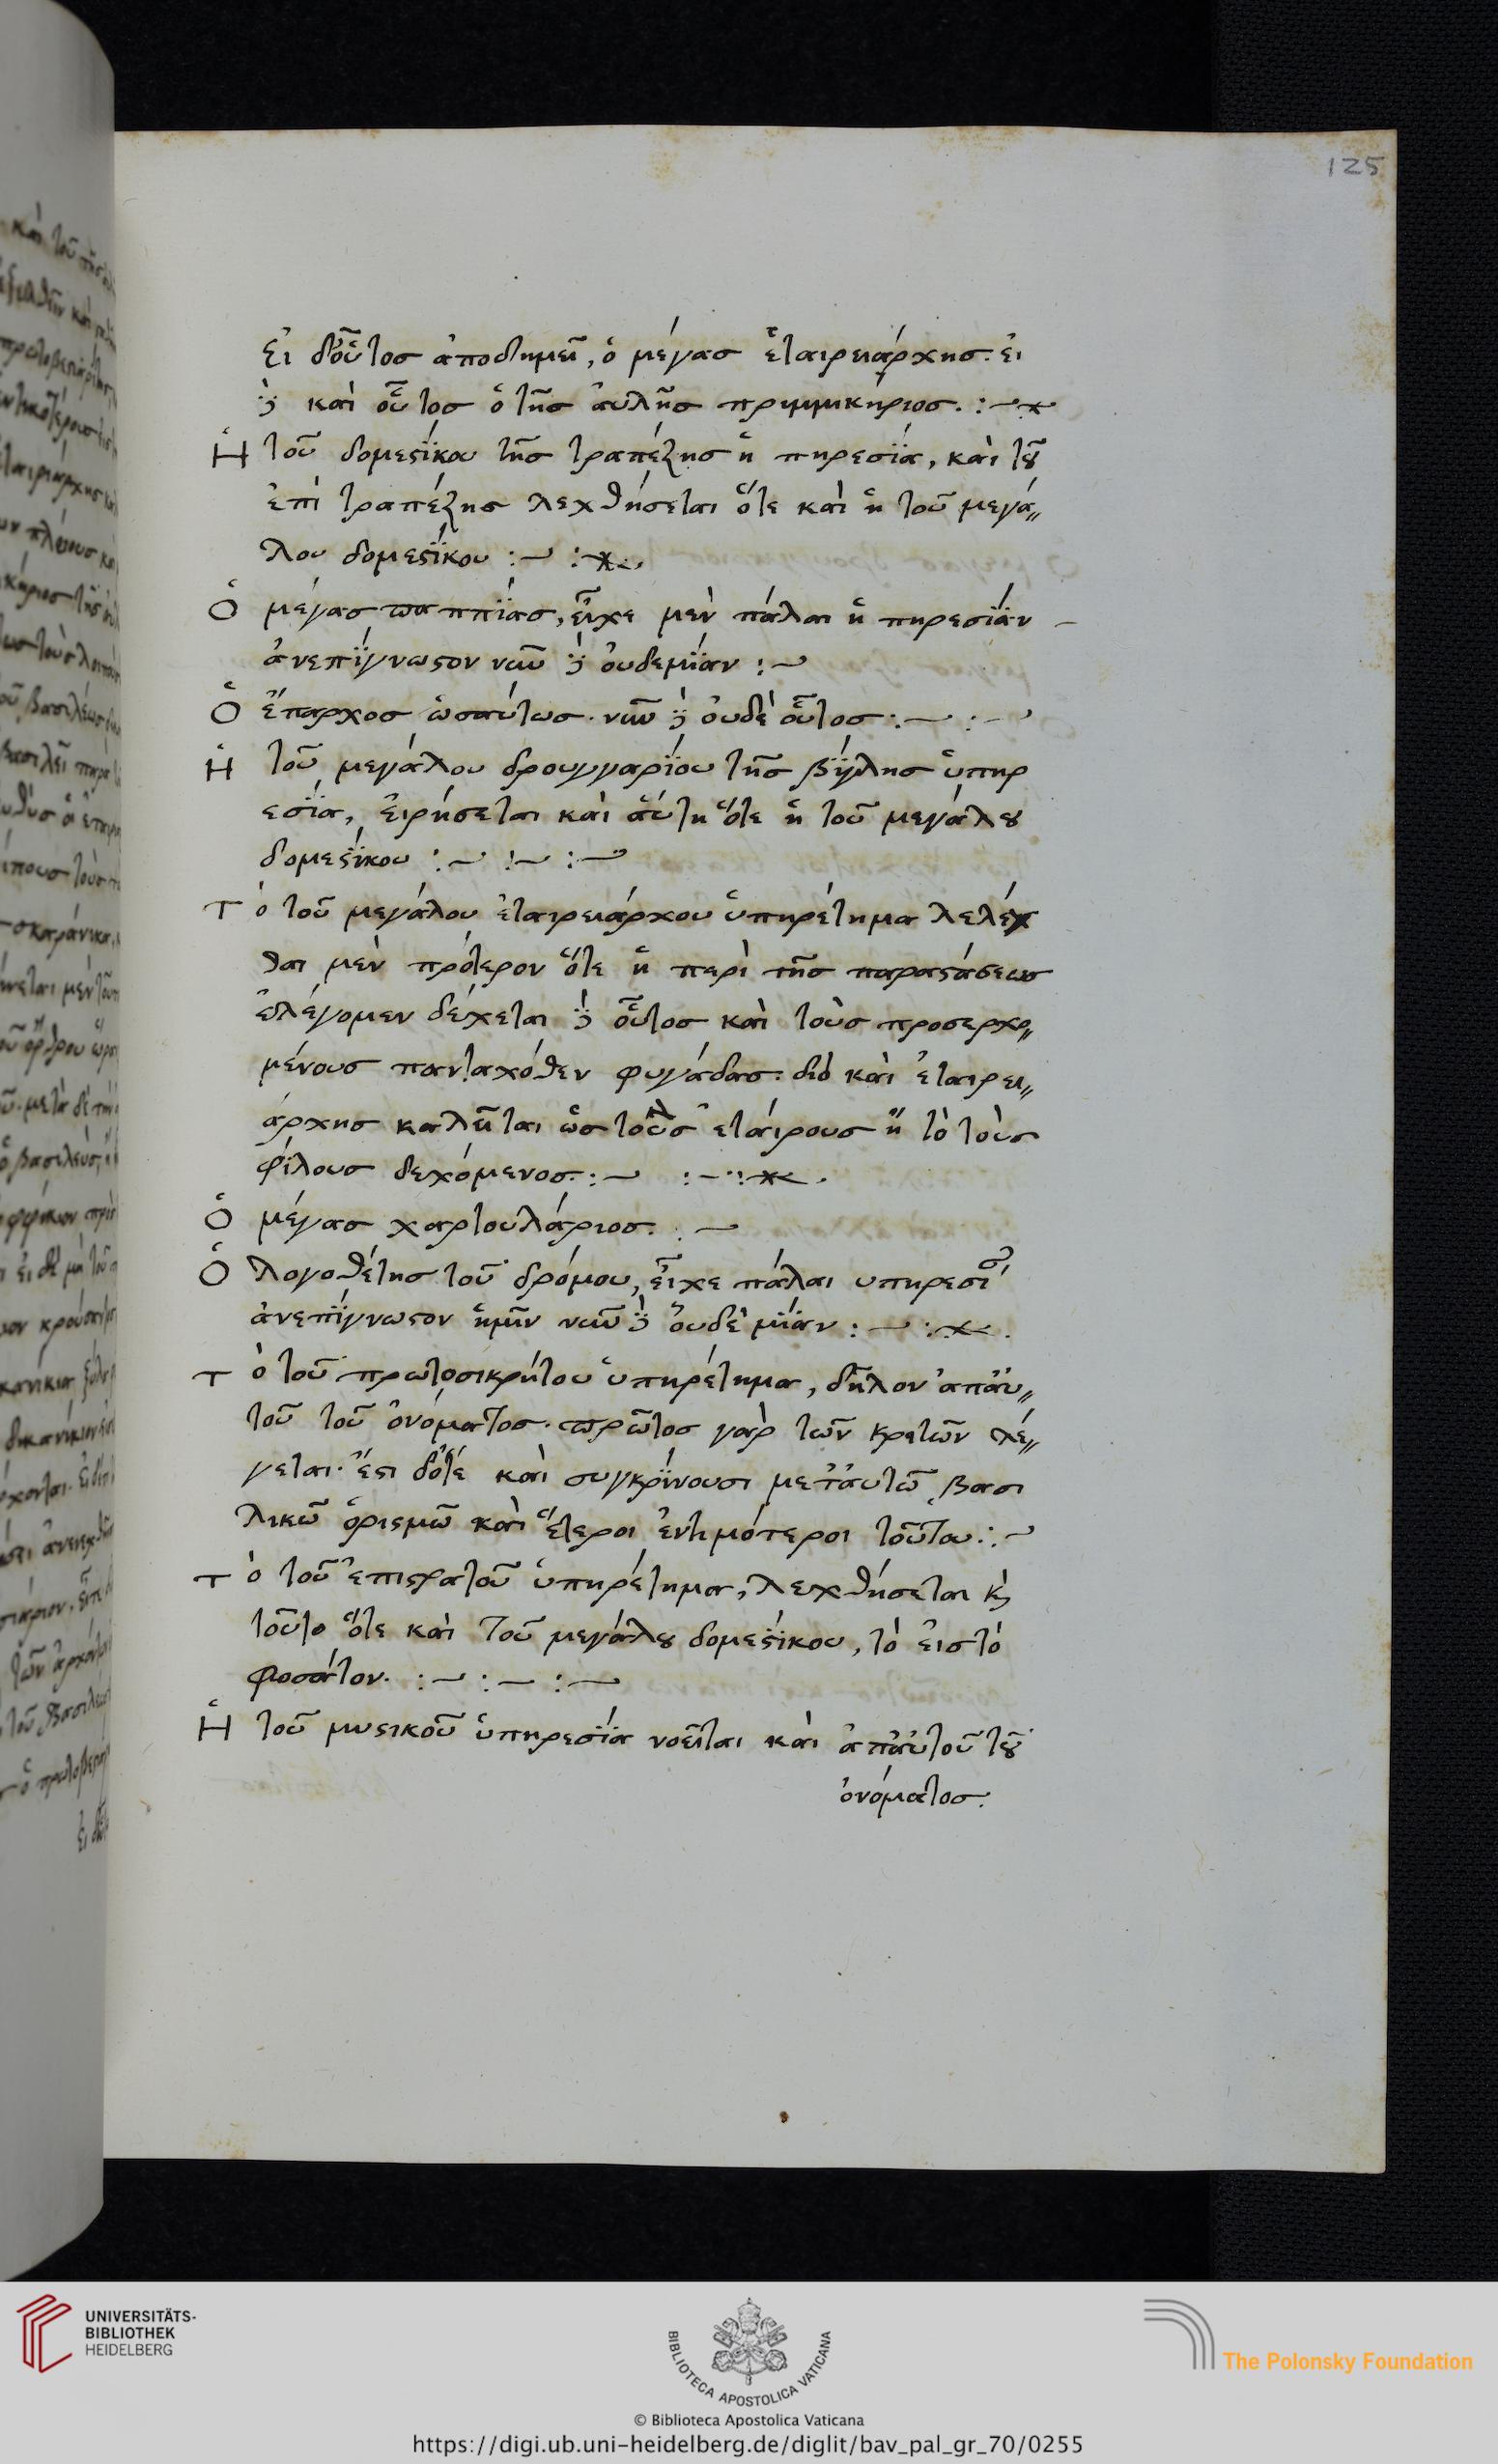 125
εἰ δ' οὗτος ἀποδημεῖ, ὁ μέγας ἑταιρειάρχης. εἰ
δὲ καὶ οὗτος ὁ τῆς αὐλῆς πριμμικήριος. :~
Ἡ τοῦ δομεστίκου τῆς τραπέζης ὑπηρεσία, καὶ τοῦ
ἐπὶ τραπέζης λεχθήσεται ὅτε καὶ ἡ τοῦ μεγά〃
λου δομεστίκου :~ :~
Ὁ μέγας παππίας, εἶχε μὲν πάλαι ὑπηρεσίαν
ἀνεπίγνωστον νῦν δὲ οὐδεμίαν :~
Ὁ ἔπαρχος ὡσαύτως. νῦν δὲ οὐδὲ οὗτος :~ :~
Ἡ τοῦ μεγάλου δρουγγαρίου τῆς βίγλης ὑπηρ
εσία, εἰρήσεται καὶ αὕτη ὅτε ἡ τοῦ μεγάλου
δομεστίκου :~ :~ :~
Τ ὸ τοῦ μεγάλου ἑταιρειάρχου ὑπηρέτημα λελέχ
θαι μὲν πρότερον ὅτε ἡ περὶ τῆς παραστάσεως
ἐλέγομεν δέχεται δὲ οὗτος καὶ τοὺς προσερχο〃
μένους πανταχόθεν φυγάδας. διὸ καὶ ἑταιρει〃
άρχης καλεῖται ὡς τοὺς ἑταίρους ἢ τὸ τοὺς
φίλους δεχόμενος. :~ :~ :~
Ὁ μέγας χαρτουλάριος. :~
Ὁ λογοθέτης τοῦ δρόμου, εἶχε πάλαι ὑπηρεσίαν
ἀνεπίγνωστον ἡμῖν νῦν δὲ οὐδὲ μίαν :~ :~
Τ ὸ τοῦ πρωτοσικρήτου ὑπηρέτημα, δῆλον ἀπ' αὐ〃
τοῦ τοῦ ὀνόματος. πρῶτος γὰρ τῶν κριτῶν λέ〃
γεται. ἔστι δ' ὅτε καὶ συγκρίνουσι μετ' αὐτῶ βασι
λικῶ ὁρισμῶ καὶ ἕτεροι ἐντιμότεροι τούτου :~
Τ ὸ τοῦ ἐπιστρατοῦ ὑπηρέτημα, λεχθήσεται καὶ
τοῦτο ὅτε καὶ τοῦ μεγάλου δομεστίκου, τὸ εἰς τὸ
φοσάτον. :~ :~ :~
Ἡ τοῦ μυστικοῦ ὑπηρεσία νοεῖται καὶ ἀπ' αὐτοῦ τοῦ
ὀνόματος.
UNIVERSITÄTS-
BIBLIOTHEK
HEIDELBERG
BIBLIOTECA APOSTOLICA VATICANA
The Polonsky Foundation
© Biblioteca Apostolica Vaticana
https://digi.ub.uni-heidelberg.de/diglit/bav_pal_gr_70/0255